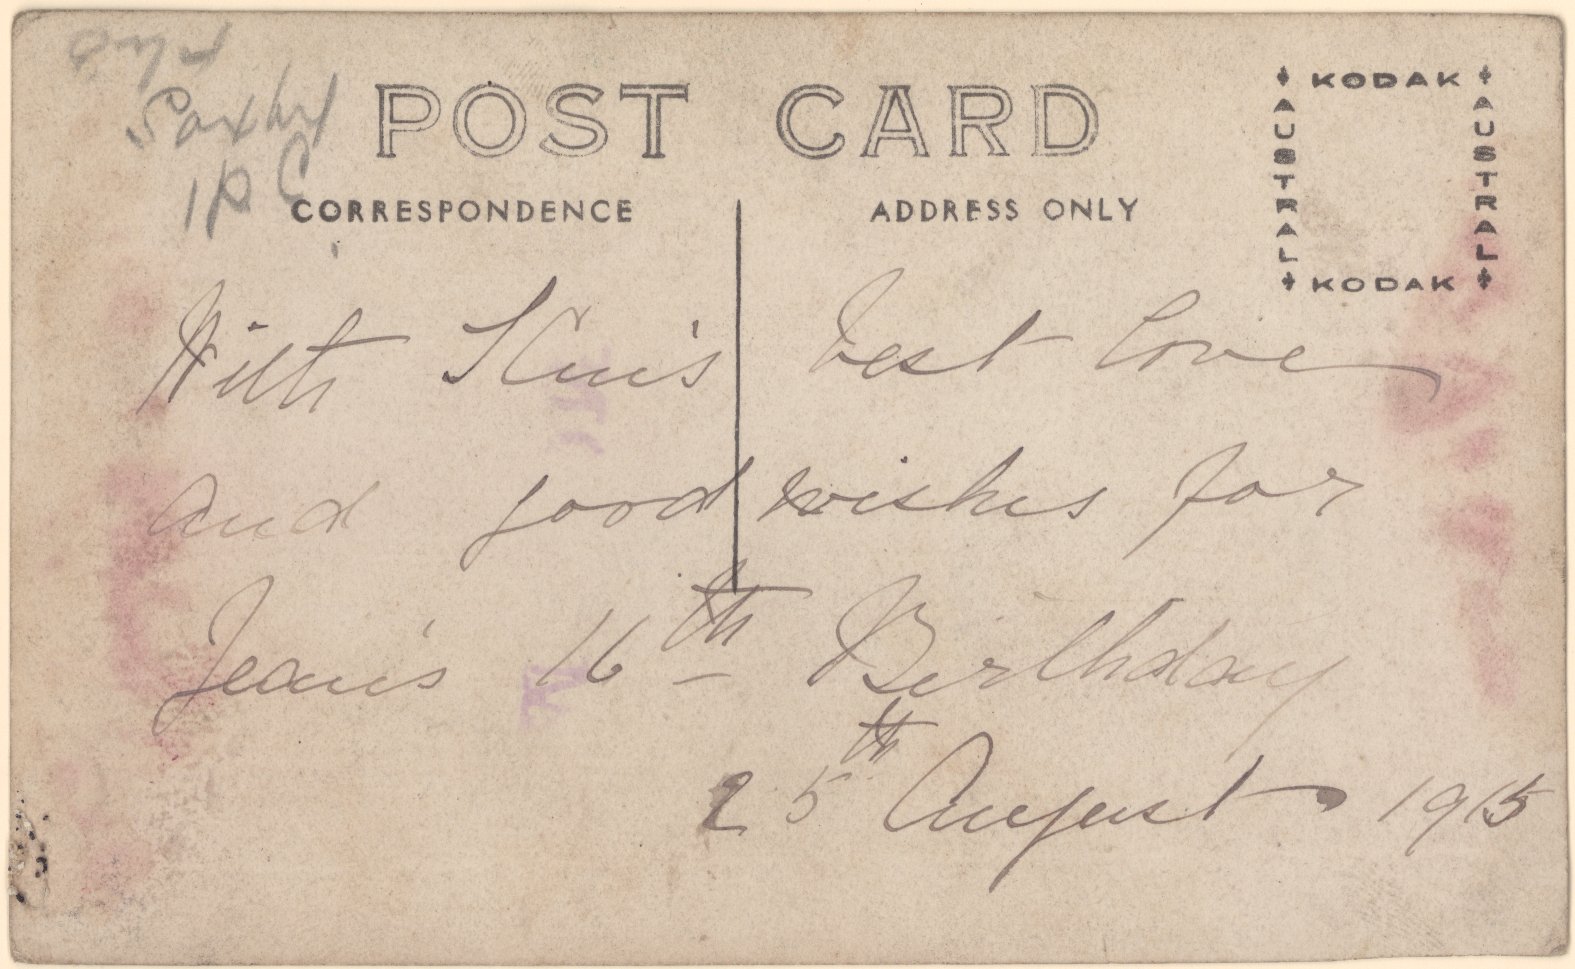 Saxby
1 P C
POST CARD
KODAK
AUSTRAL
AUSTRAL
KODAK
CORRESPONDENCE
ADDRESS ONLY
With best love
and good wishes for
Jean's 16th Birthday
25th August 1915